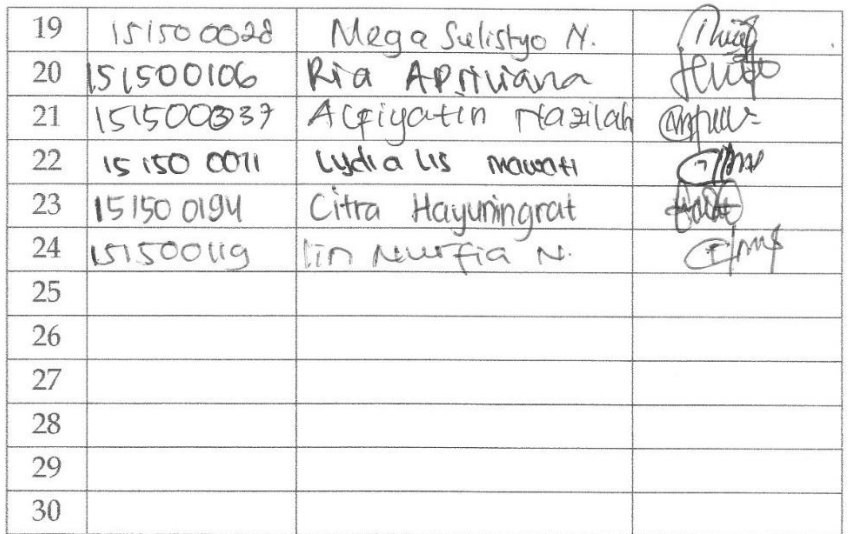 19 151500028 Mega Sulistyo N.
20 151500106 Ria Apriviana
21 151500337 Alfiyatin Nazilah
22 151500011 Lydia Lis Mawati
23 151500194 Citra Hayuningrat
24 151500119 Iin Nurfia N.
25
26
27
28
29
30